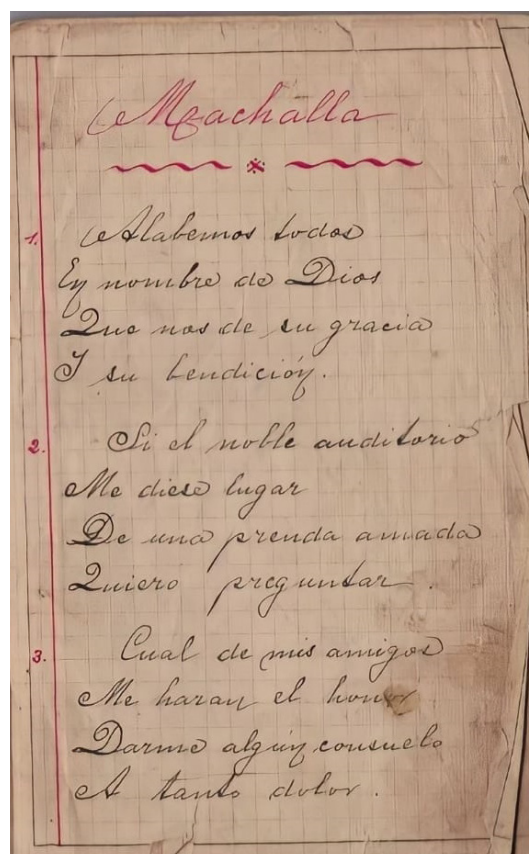 Machalla
1. Alabemos todos
En nombre de Dios
Que nos de su gracia
Y su bendición.
2. Si el noble auditorio
Me diese lugar
De una prenda amada
Quiero preguntar.
3. Cual de mis amigos
Me haran el honor
Darme algún consuelo
A tanto dolor.